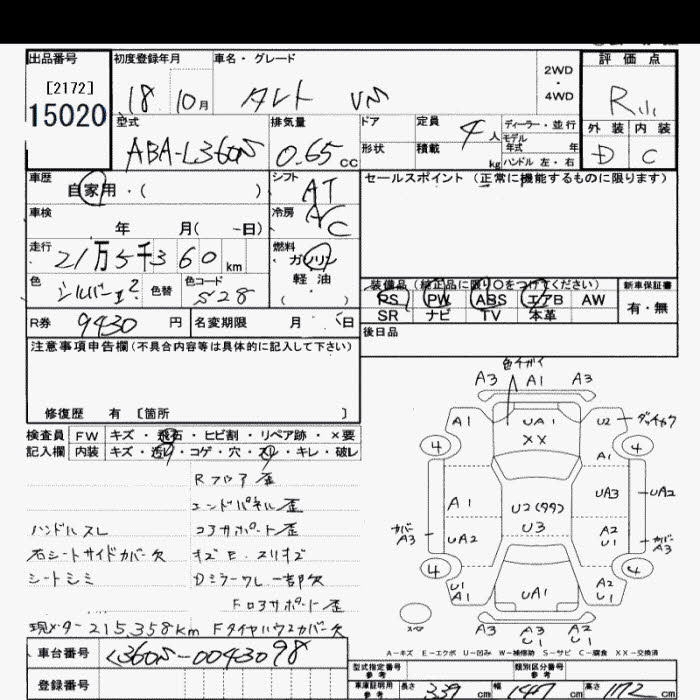 出品番号
[2172]
15020
初度登録年月
18 10月
車名・グレード
タント VS
2WD
・
4WD
評価点
R
外装 内装
D C
型式
ABA-L360S
排気量
0.65cc
ドア
形状
定員 4人
積載 kg
ディーラー・並行
モデル
年式 年
ハンドル 左・右
車歴
自家用・( )
シフト
AT
セールスポイント (正常に機能するものに限ります)
車検
年 月( -日)
冷房
AC
走行
21万5千360km
燃料
ガソリン
軽油
( )
色
シルバー
色替
色コード
S28
装備品(純正品に限り○をつけてください)
PS PW ABS エアB AW
SR ナビ TV 本革
新車保証書
有・無
R券 9430円
名変期限 月 日
後日品
注意事項申告欄(不具合内容等は具体的に記入して下さい)
修復歴 有 [箇所 ]
検査員
記入欄
FW キズ・飛石・ヒビ割・リペア跡・×要
内装 キズ・汚れ・コゲ・穴・スレ・キレ・破レ
Rフロア歪
エンドパネル歪
ハンドルスレ コアサポート歪
右シートサイドカバー欠 キズE・スリキズ
シートシミ Dミラーワレ一部欠
Fロアサポート歪
現メーター215,358km Fタイヤハウスカバー欠
色チガイ
A3 A1 A3
A1 UA1 U2 ダッチャク
XX
4 4
A1
A1 UA3 UA2
U2(99)
U3
カバー
A3
UA2 A2
U1
カバー
A3
4 4
U1
A1
UA1 A2
U1
A3 A3
U1
A2
U1
A-キズ E-エクボ U-凹み W-補修跡 S-サビ C-腐食 XX-交換済
車台番号 L360S-0043098
登録番号
型式指定番号
参考
類別区分番号
参考
車庫証明用
参考
長さ 339cm 幅 147cm 高さ 172cm